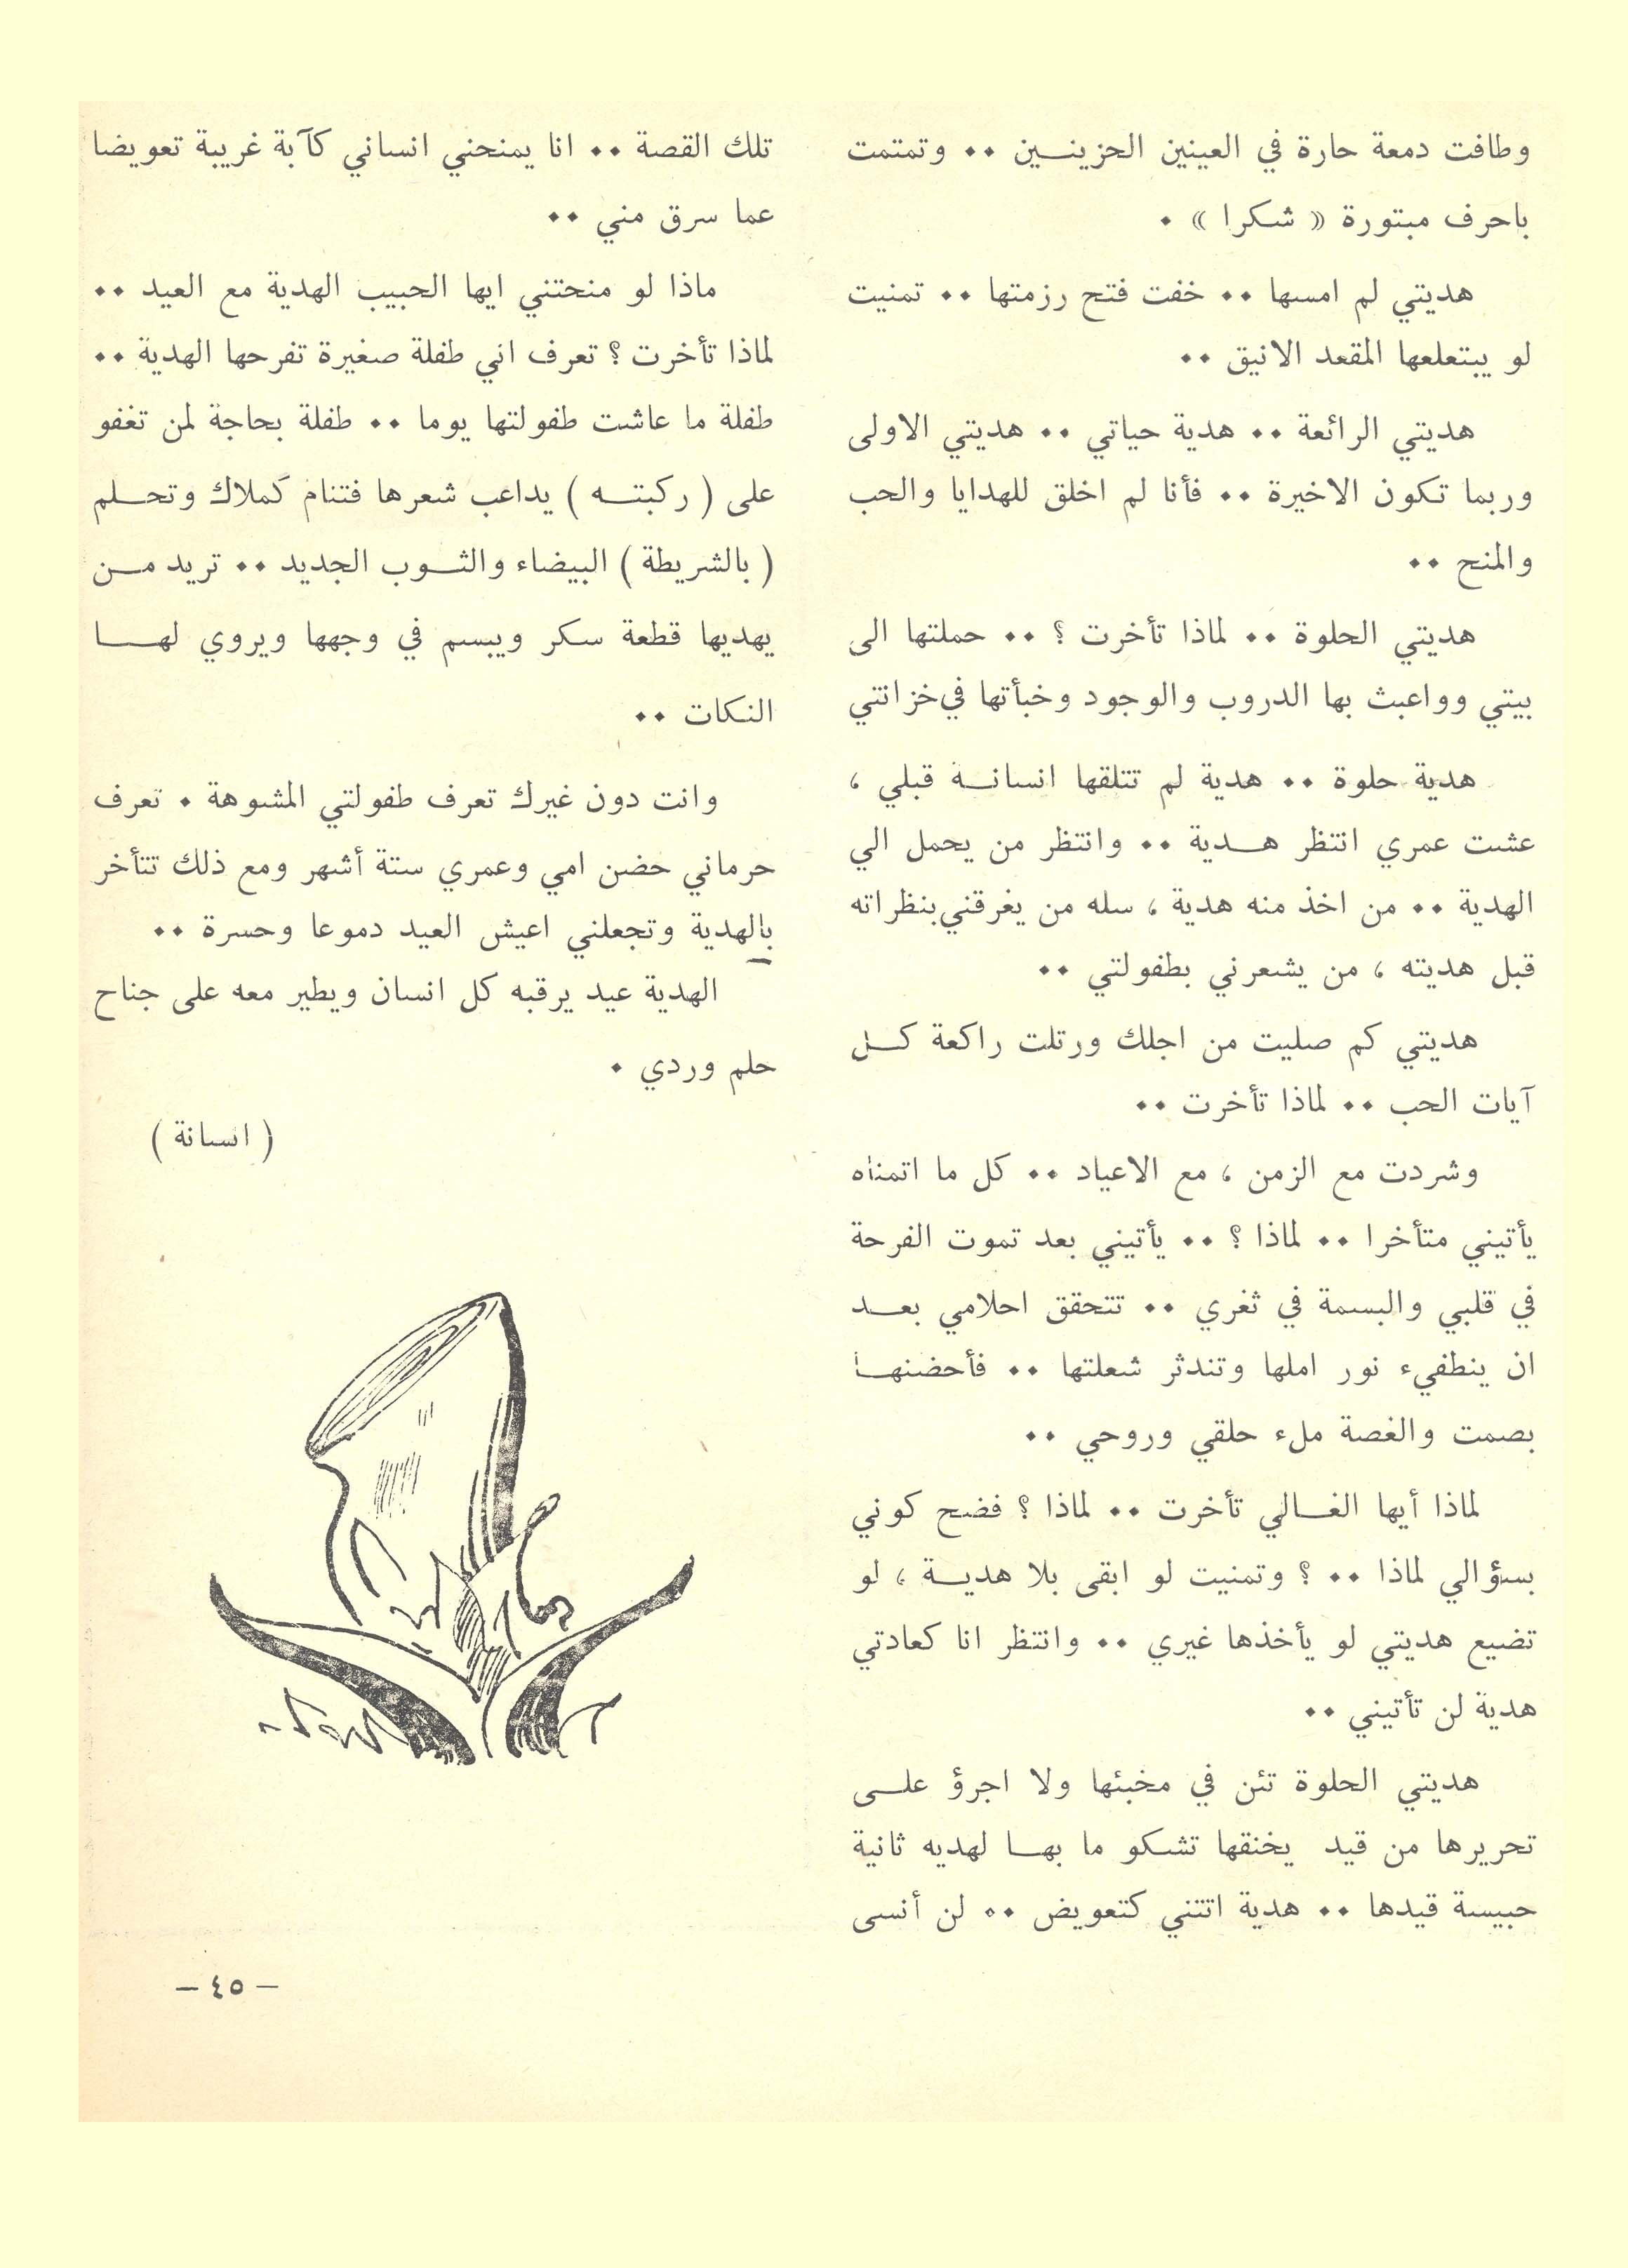 وطافت دمعة حارة في العينين الحزينـــين ٠٠ وتمتمت
باحرف مبتورة « شكرا » ٠
هديتي لم امسها ٠٠ خفت فتح رزمتها ٠٠ تمنيت
لو يبتعلعها المقعد الانيق ٠٠
هديتي الرائعة ٠٠ هدية حياتي ٠٠ هديتي الاولى
وربما تكون الاخيرة ٠٠ فأنا لم اخلق للهدايا والحب
والمنح ٠٠
هديتي الحلوة ٠٠ لماذا تأخرت ؟ ٠٠ حملتها الى
بيتي وواعبث بها الدروب والوجود وخبأتها في خزانتي
هدية حلوة ٠٠ هدية لم تتلقها انسانــة قبلي ،
عشت عمري انتظر هــدية ٠٠ وانتظر من يحمل الي
الهدية ٠٠ من اخذ منه هدية ، سله من يغرقني بنظراته
قبل هديته ، من يشعرني بطفولتي ٠٠
هديتي كم صليت من اجلك ورتلت راكعة كــل
آيات الحب ٠٠ لماذا تأخرت ٠٠
وشردت مع الزمن ، مع الاعياد ٠٠ كل ما اتمناه
يأتيني متأخرا ٠٠ لماذا ؟ ٠٠ يأتيني بعد تموت الفرحة
في قلبي والبسمة في ثغري ٠٠ تتحقق احلامي بعــد
ان ينطفيء نور املها وتندثر شعلتها ٠٠ فأحضنهــا
بصمت والغصة ملء حلقي وروحي ٠٠
لماذا أيها الغــالي تأخرت ٠٠ لماذا ؟ فضح كوني
بسؤالي لماذا ٠٠ ؟ وتمنيت لو ابقى بلا هديــة ، لو
تضيع هديتي لو يأخذها غيري ٠٠ وانتظر انا كعادتي
هدية لن تأتيني ٠٠
هديتي الحلوة تئن في مخبئها ولا اجرؤ علــى
تحريرها من قيد يخنقها تشكو ما بهــا لهديه ثانية
حبيسة قيدها ٠٠ هدية اتتني كتعويض ٠٠ لن أنسى
تلك القصة ٠٠ انا يمنحني انساني كآبة غريبة تعويضا
عما سرق مني ٠٠
ماذا لو منحتني ايها الحبيب الهدية مع العيد ٠٠
لماذا تأخرت ؟ تعرف اني طفلة صغيرة تفرحها الهدية ٠٠
طفلة ما عاشت طفولتها يوما ٠٠ طفلة بحاجة لمن تغفو
على ( ركبتــه ) يداعب شعرها فتنام كملاك وتحــلم
( بالشريطة ) البيضاء والثــوب الجديد ٠٠ تريد مــن
يهديها قطعة سكر ويبسم في وجهها ويروي لهــــا
النكات ٠٠
وانت دون غيرك تعرف طفولتي المشوهة ٠ تعرف
حرماني حضن امي وعمري ستة أشهر ومع ذلك تتأخر
بالهدية وتجعلني اعيش العيد دموعا وحسرة ٠٠
الهدية عيد يرقبه كل انسان ويطير معه على جناح
حلم وردي ٠
( انسانة )
— ٤٥ —